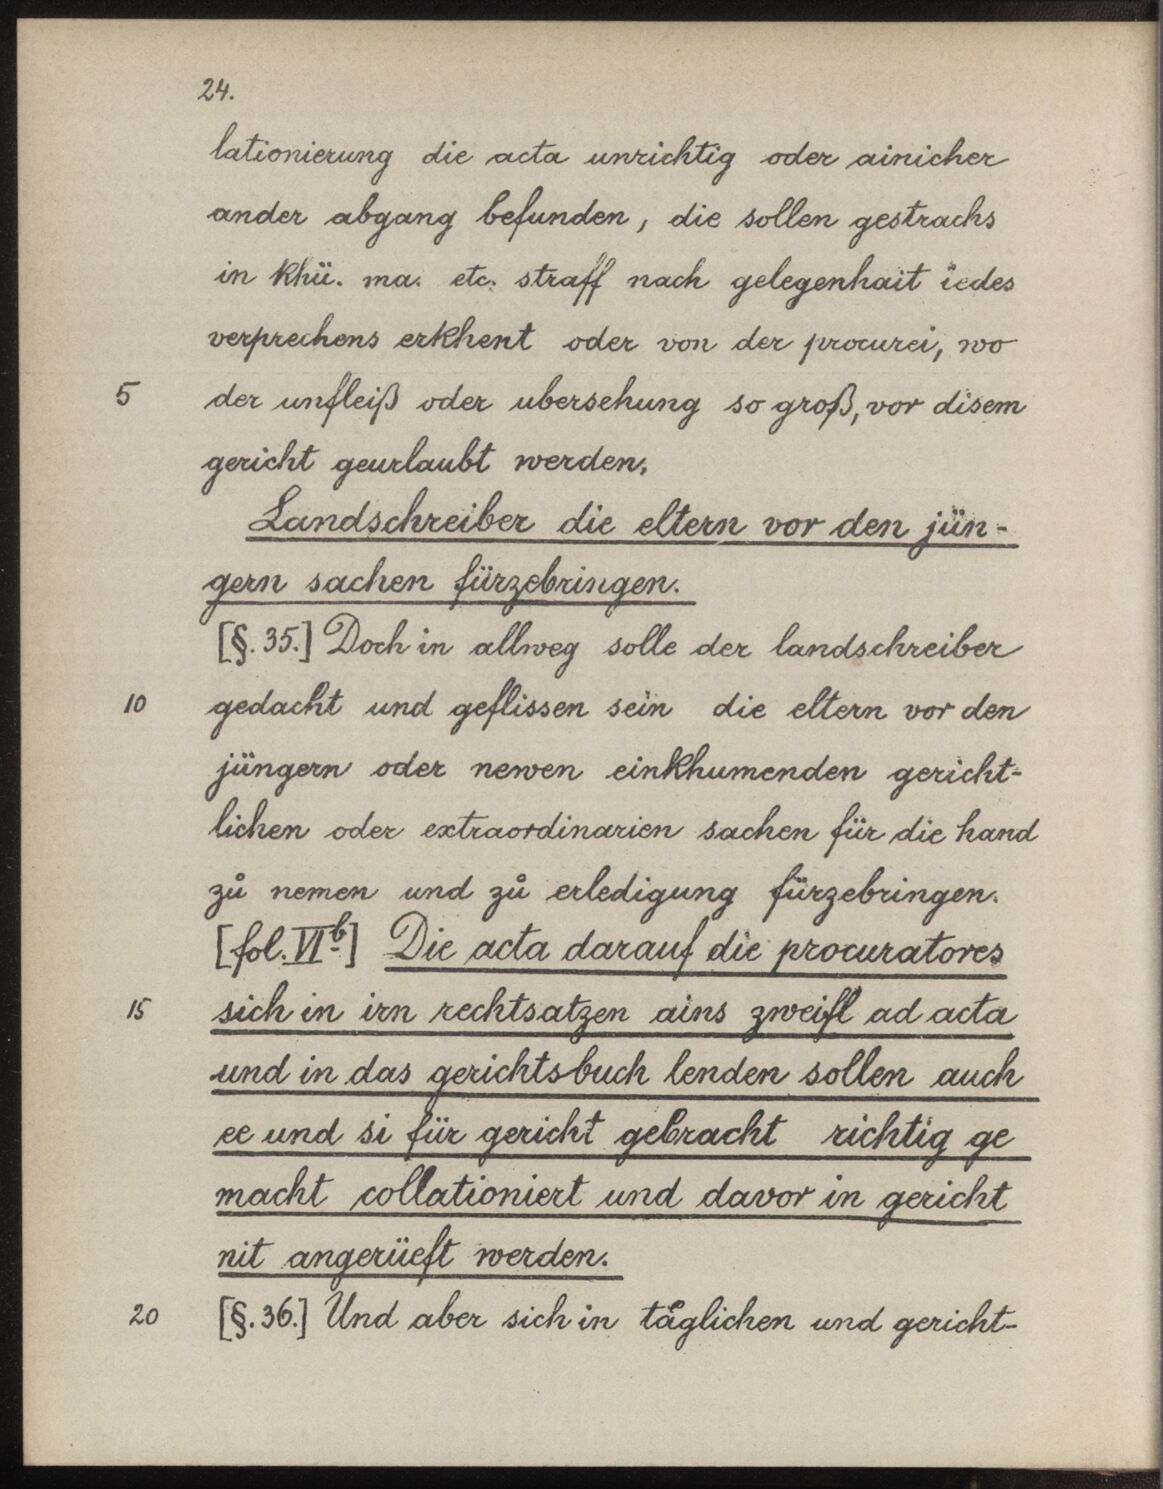 24.
lationierung die acta unrichtig oder ainicher
ander abgang befunden, die sollen gestrachs
in khü. ma. etc. straff nach gelegenhait iedes
verprechens erkhent oder von der procurei, wo
5 der unfleiß oder ubersehung so groß, vor disem
gericht geurlaubt werden.
Landschreiber die eltern vor den jün-
gern sachen fürzebringen.
[§. 35.] Doch in allweg solle der landschreiber
10 gedacht und geflissen sein die eltern vor den
jüngern oder newen einkhumenden gericht-
lichen oder extraordinarien sachen für die hand
zů nemen und zů erledigung fürzebringen.
[fol. VIb.] Die acta darauf die procuratores
15 sich in irn rechtsatzen ains zweifl ad acta
und in das gerichtsbuch lenden sollen auch
ee und si für gericht gebracht richtig ge
macht collationiert und davor in gericht
nit angerüeft werden.
20 [§. 36.] Und aber sich in täglichen und gericht-